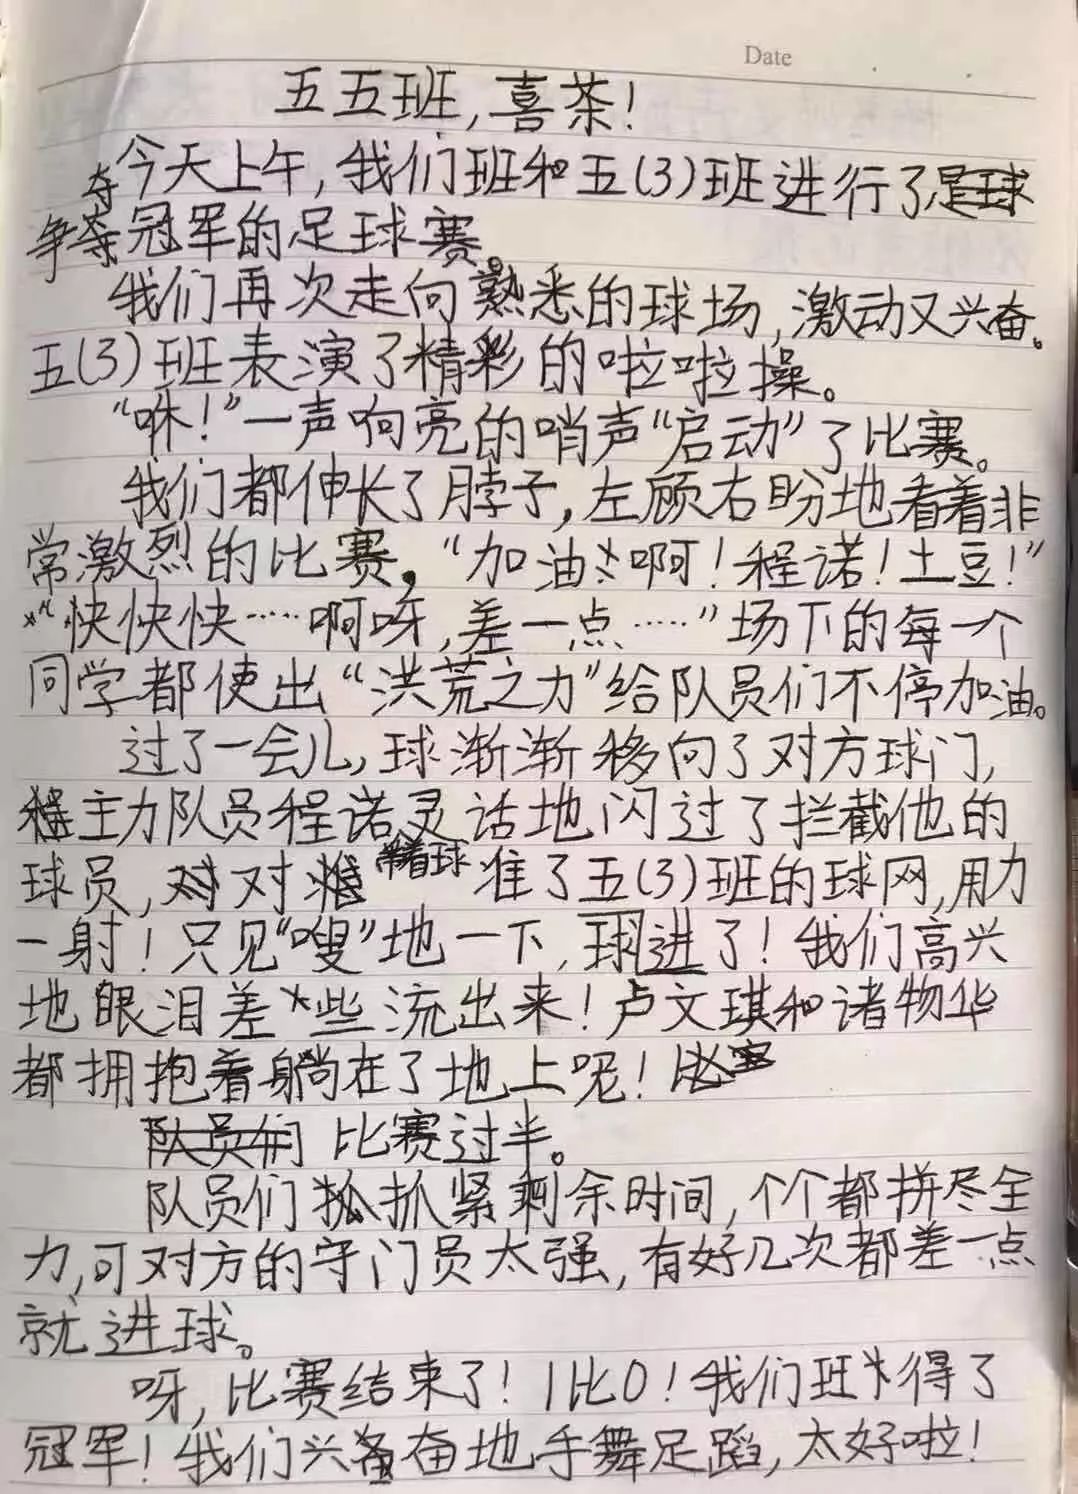 Date
五五班,喜茶!
今天上午,我们班和五(3)班进行了
争夺冠军的足球赛。
我们再次走向熟悉的球场,激动又兴奋。
五(3)班表演了精彩的啦啦操。
“咻!”一声响亮的哨声“启动”了比赛。
我们都伸长了脖子,左顾右盼地看着非
常激烈的比赛。“加油!啊!程诺!土豆!”
“快快快……啊呀,差一点……”场下的每一个
同学都使出“洪荒之力”给队员们不停加油。
过了一会儿,球渐渐移向了对方球门,
主力队员程诺灵活地闪过了拦截他的
球员,对 带着球 准了五(3)班的球网,用力
一射!只见“嗖”地一下,球进了!我们高兴
地眼泪差些流出来!卢文琪和诸物华
都拥抱着躺在了地上呢!
比赛过半。
队员们抓紧剩余时间,个个都拼尽全
力,可对方的守门员太强,有好几次都差一点
就进球。
呀,比赛结束了!1比0!我们班得了
冠军!我们兴奋地手舞足蹈,太好啦!